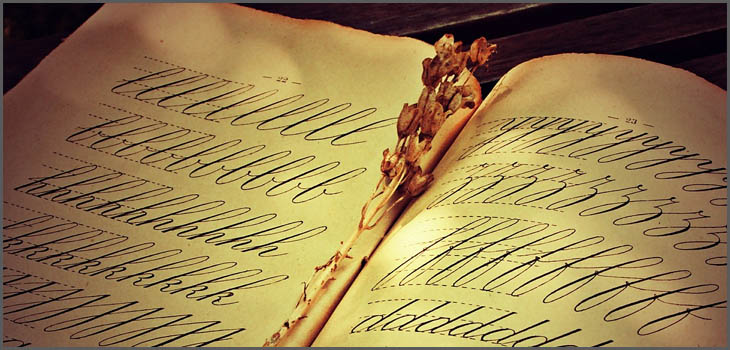 22
llllllllll
bbbbbbbbbb
hhhhhhhhhh
kkkkkkkkkk
23
yyyyyyyyy
zzzzzzzz
fffffffff
ddddddddd